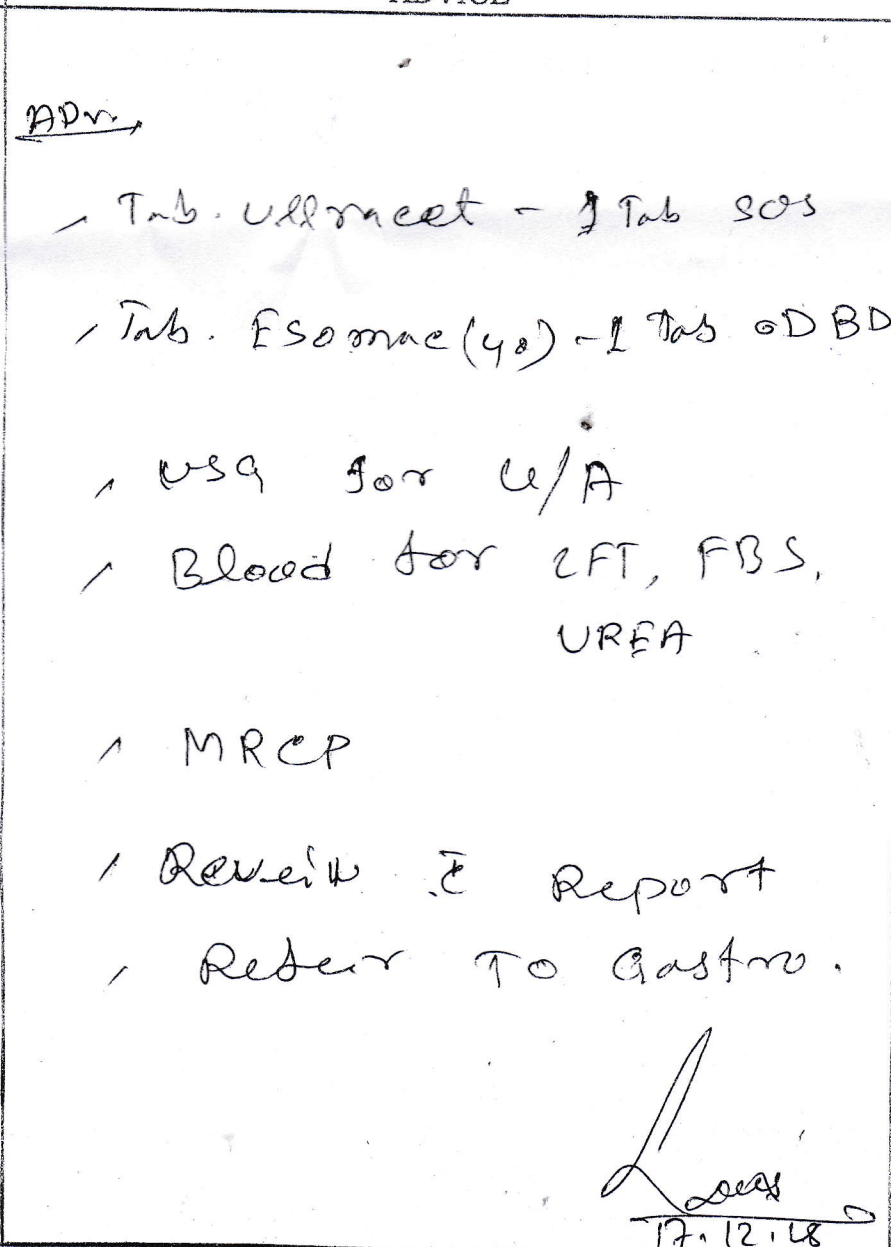 ADVICE
ADV.
Tab. Ultracet - 1 Tab SOS
Tab. Esomac (40) - 1 Tab OD BD
USG for U/A
Blood for LFT, FBS,
UREA
MRCP
Reveiw c̄ Report
Refer To Gastro.
17.12.18